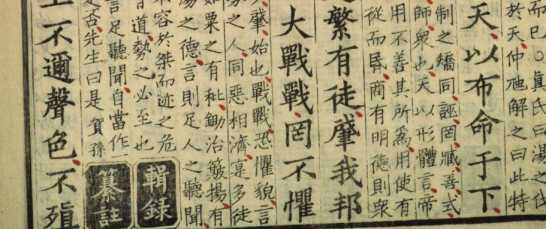 而已。真氏曰湯之伐
於天仲虺解之曰此特
天以布命于下
制之矯同誣罔臧善式
師衆也天以形體言帝
用不善其所為用使有
從而昏商有明德則衆
繁有徒肇我邦
大戰戰罔不懼
肇始也戰戰恐懼貌言
之人同惡相濟寔多徒
如粟之有秕鋤治簸揚有
湯之德言則足人之聽聞
容於桀而迹之危
道勢之必至也
輯錄
言足聽聞自當作一
古先生曰是賓孫
纂註
不邇聲色不殖